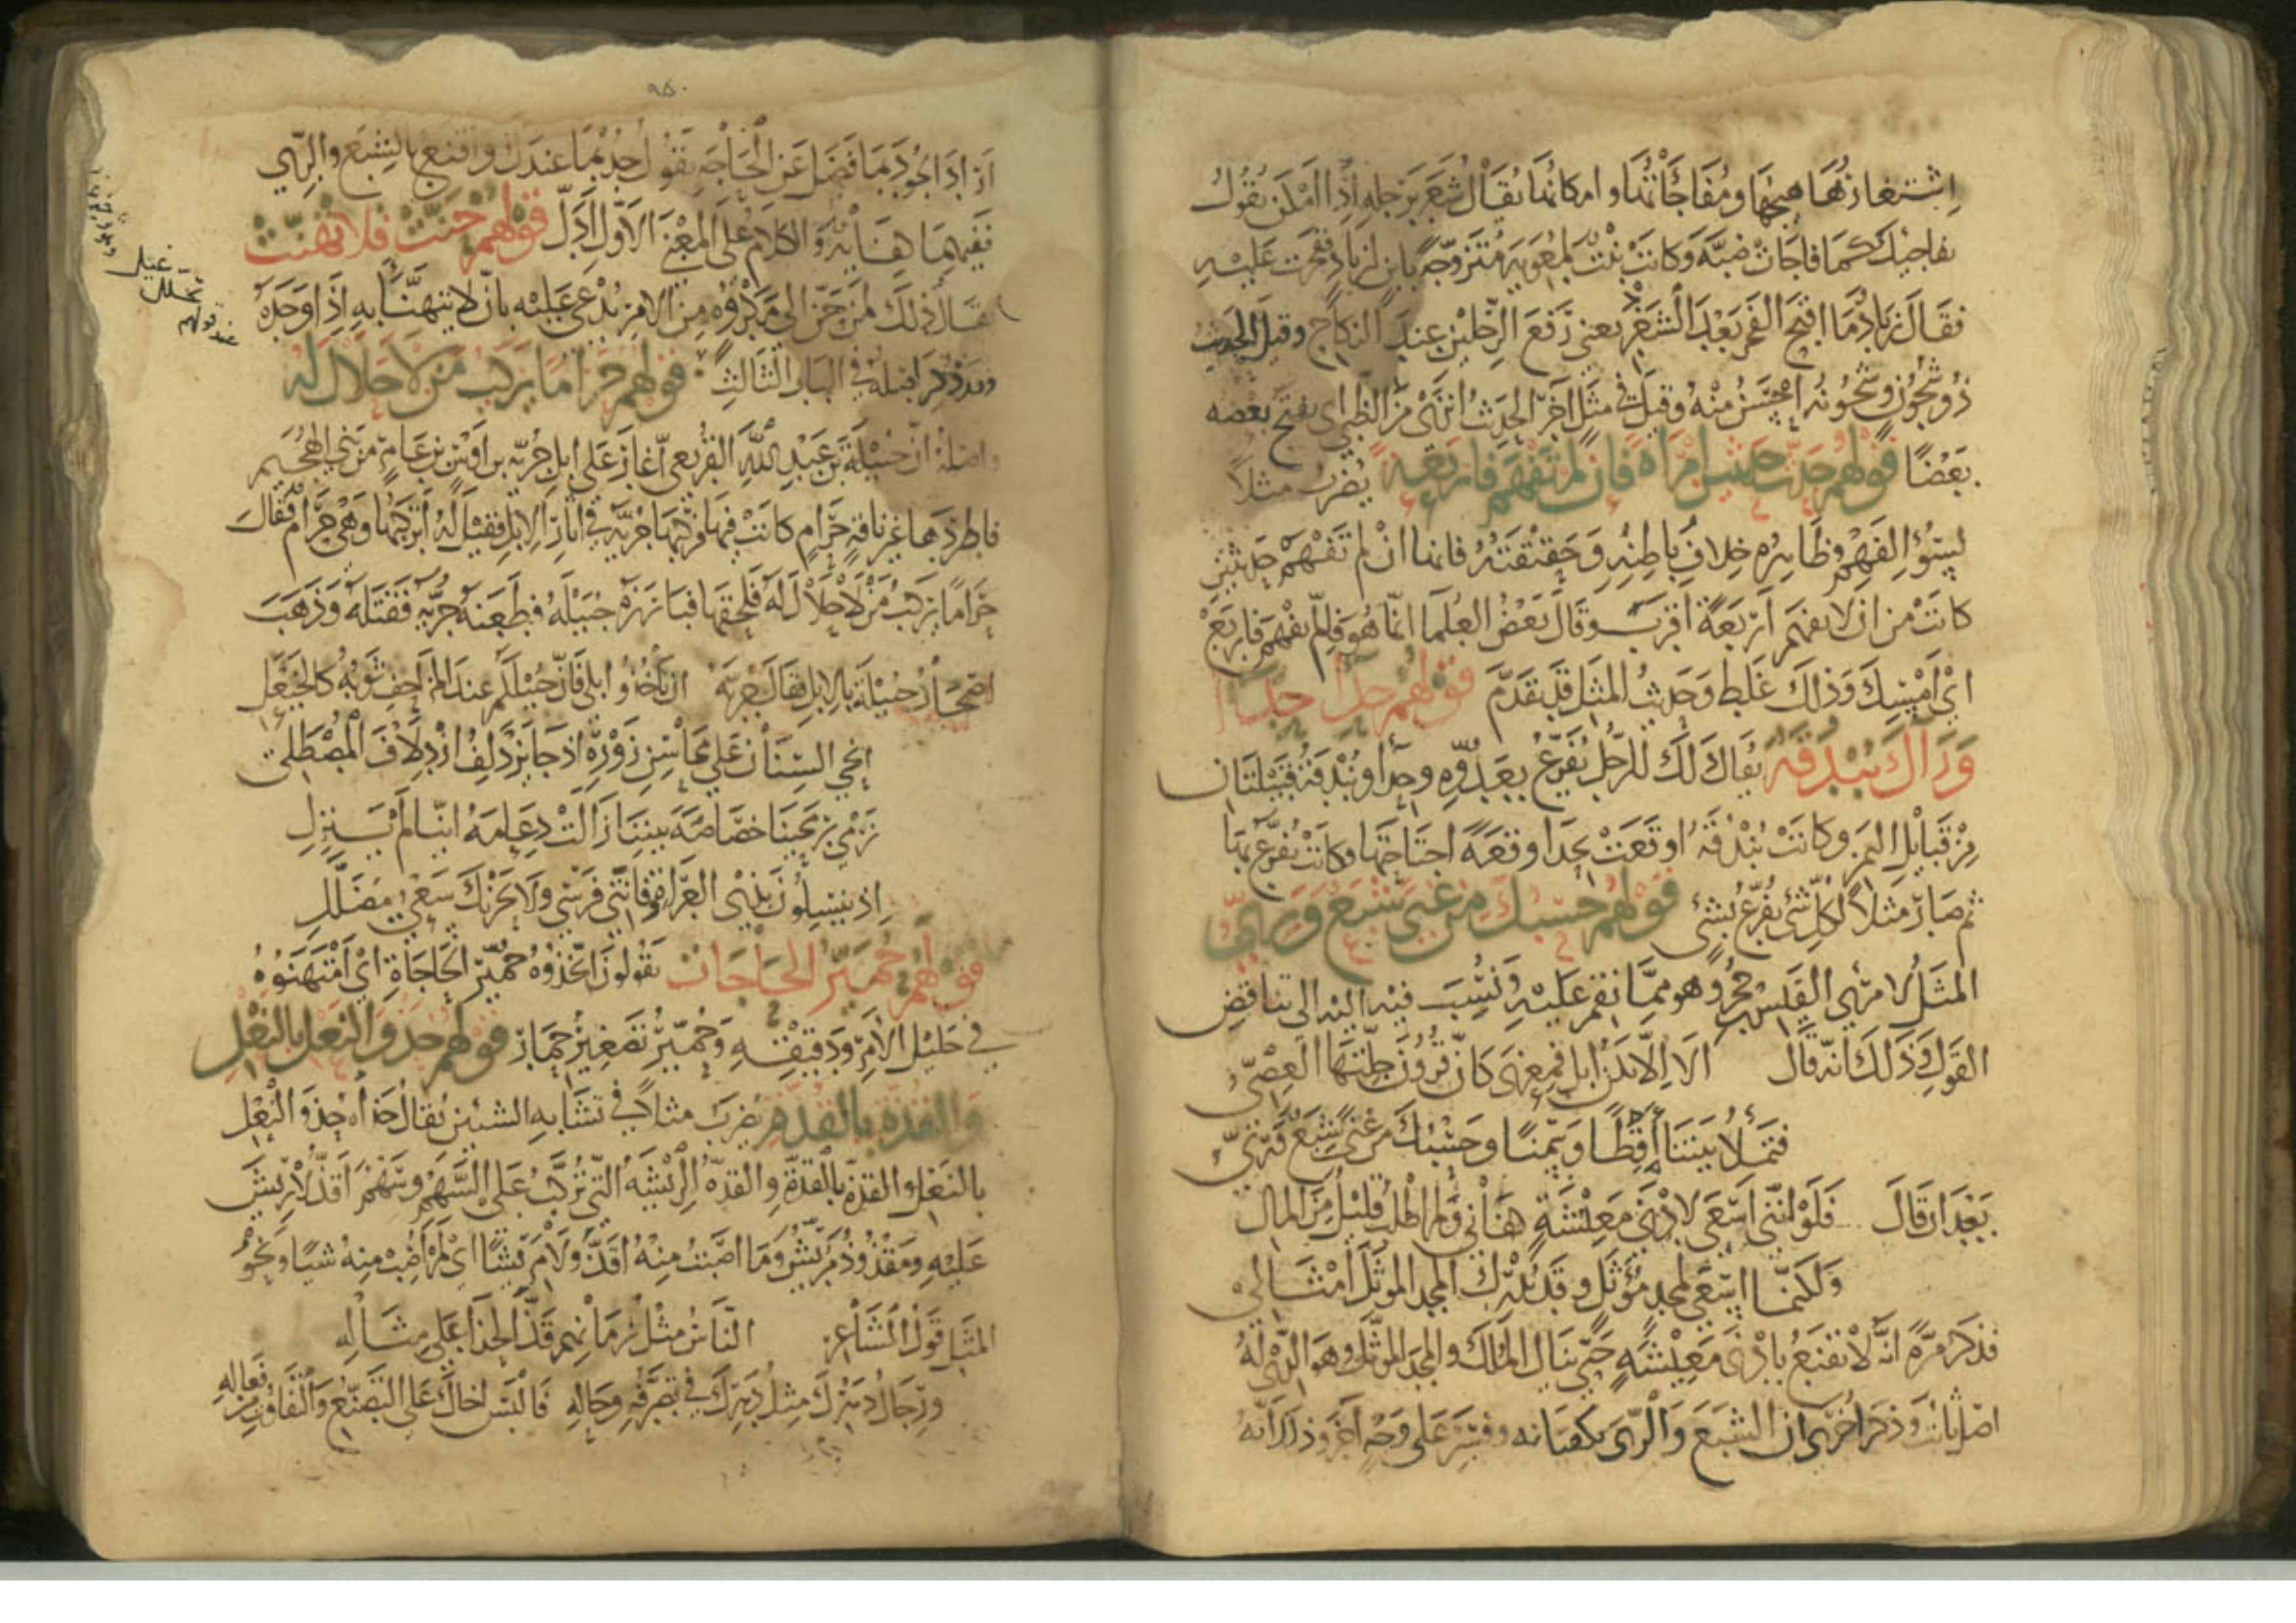 اشتغارها هيجها ومفاجأتها وامكانها يقال شغر برجله اذا امكن يقول
يفاجيك كما فاجات ضبة وكانت بنت لمعوية متزوجة بابن لزياد ففخرت عليه
فقال زياد ما اقبح الفخر بعد الشغر يعني رفع الرجلين عند النكاح وقيل الحديث
ذو شجون وشجونه احسن منه وقيل في مثل آخر الحديث انزى من الظبي اي يفتح بعضه
بعضا قولهم حدث حديثين امرأة فان لم تفهم فاربعة يضرب مثلا
لسوء الفهم وظاهره خلاف باطنه وحقيقته فانما ان لم تفهم حديثين
كانت من ان لا تفهم اربعة اقرب وقال بعض العلما انما هو فان لم يفهم فاربع
اي امسك وذلك غلط وحديث المثل قد تقدم قولهم حدأ حدأ
وراك بندقة يقال ذلك للرجل يفزع بعدوه وحدأ وبندقة قبيلتان
من قبايل اليمن وكانت بندقة اوقعت بحدا وقعة اجتاحتها وكانت تفزع بها
ثم صار مثلا لكل شي يفزع بشي قولهم حسبك من غنى شبع وري
المثل لامرئ القيس بن حجر وهو مما نقم عليه ونسب فيه الى تناقض
القول وذلك انه قال الا الا تكن ابل فمعزى كان قرون جلتها العصي
فتملأ بيتنا أقطا وسمنا وحسبك من غنى شبع وري
بعد ان قال فلو انني اسعى لادنى معيشة كفاني ولم اطلب قليل من المال
ولكنما اسعى لمجد مؤثل وقد يدرك المجد المؤثل امثالي
فذكر مرة انه لا يقنع بادنى معيشة حتى ينال الملك والمجد المؤثل وهو الذي له
اصل ثابت وذكر اخرى ان الشبع والري يكفيانه وفسر على وجه آخر وذلك انه
٩٥٠
اراد الجود بما فضل عن الحاجة يقول جد بما عندك واقنع بالشبع والري
ففيهما كفاية والكلام على المعنى الاول ادل قولهم حنت فلا تهنت
يقال ذلك لمن حن الى مكروه من الامر يدعى عليه بان لا يتهنا به اذا وجده
وقد ذكر اصله في الباب الثالث قولهم حراما يركب من لا حلال له
واصله ان جبيلة بن عبد الله القريعي اغار على ابل جرية بن اوس بن عامر من بني الهجيم
فاطردها غير ناقة حرام كانت فيها فركبها جرية في آثار الابل فقيل له اتركبها وهي حرام فقال
حراما يركب من لا حلال له فلحقها فبارزه جبيلة فطعنه جرية فقتله وذهب
اصحاب جبيلة بالابل فقال جرية ان تأخذوا ابلي فان جبيلكم عند المزاحف ثوبه كالخيعل
انحي السنان على محاسن زوره اذ جا يزدلف ازدلاف المصطلي
نرمي بريحينا خصاصة بيننا زالت دعامة اينا لم ينزل
اذ ينسلون بذي العراقة فاتني فرسي ولا يحزنك سعي مضلل
قولهم حمير الحاجات يقولون اتخذوه حمير الحاجاة اي امتهنوه
في جليل الامر ودقيقه وحمير تصغير حمار قولهم حذو النعل بالنعل
والقذة بالقذة يضرب مثلا في تشابه الشيئين يقال حذاه حذو النعل
بالنعل والقذة بالقذة والقذة الريشة التي تركب على السهم وسهم اقذ لا ريش
عليه ومقذوذ مريش وما اصبت منه اقذ ولا مريشا اي لم اصب منه شيا ونحو
المثل قول الشاعر الناس مثل زمانهم قذ الحذا على مثاله
ورجال دهرك مثل دهرك في تصرفه وحاله فالبس اخاك على التصنع والتفاوت من فعاله
عند قولهم